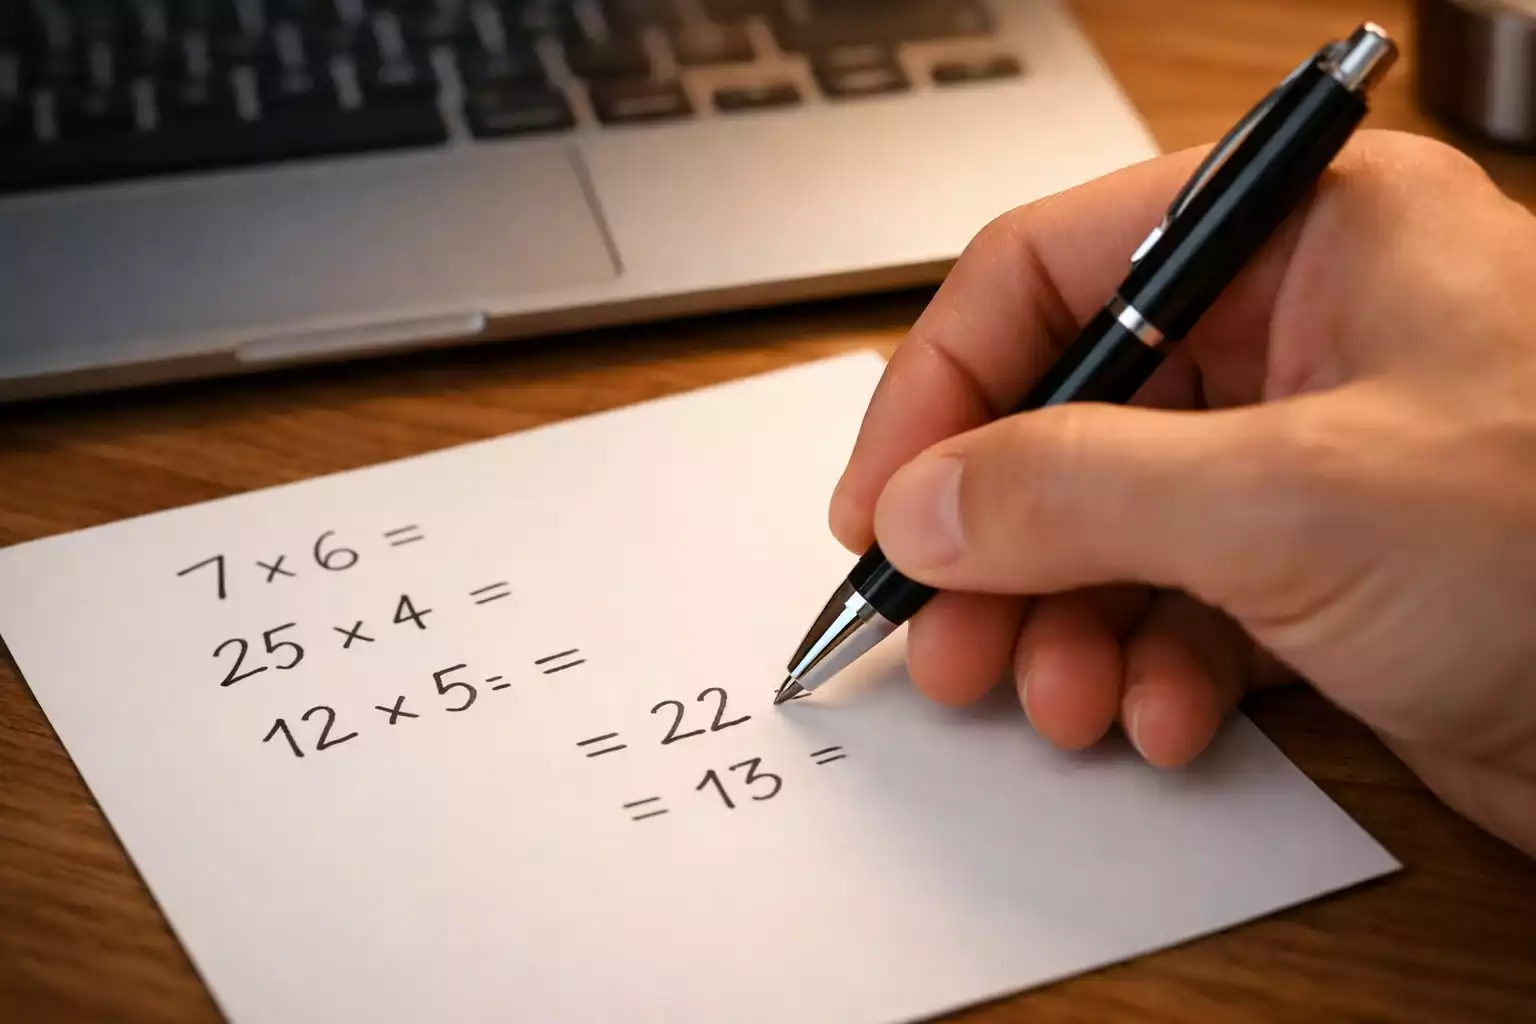 7 × 6 =
25 × 4 =
12 × 5 = =
= 22 =
= 13 =